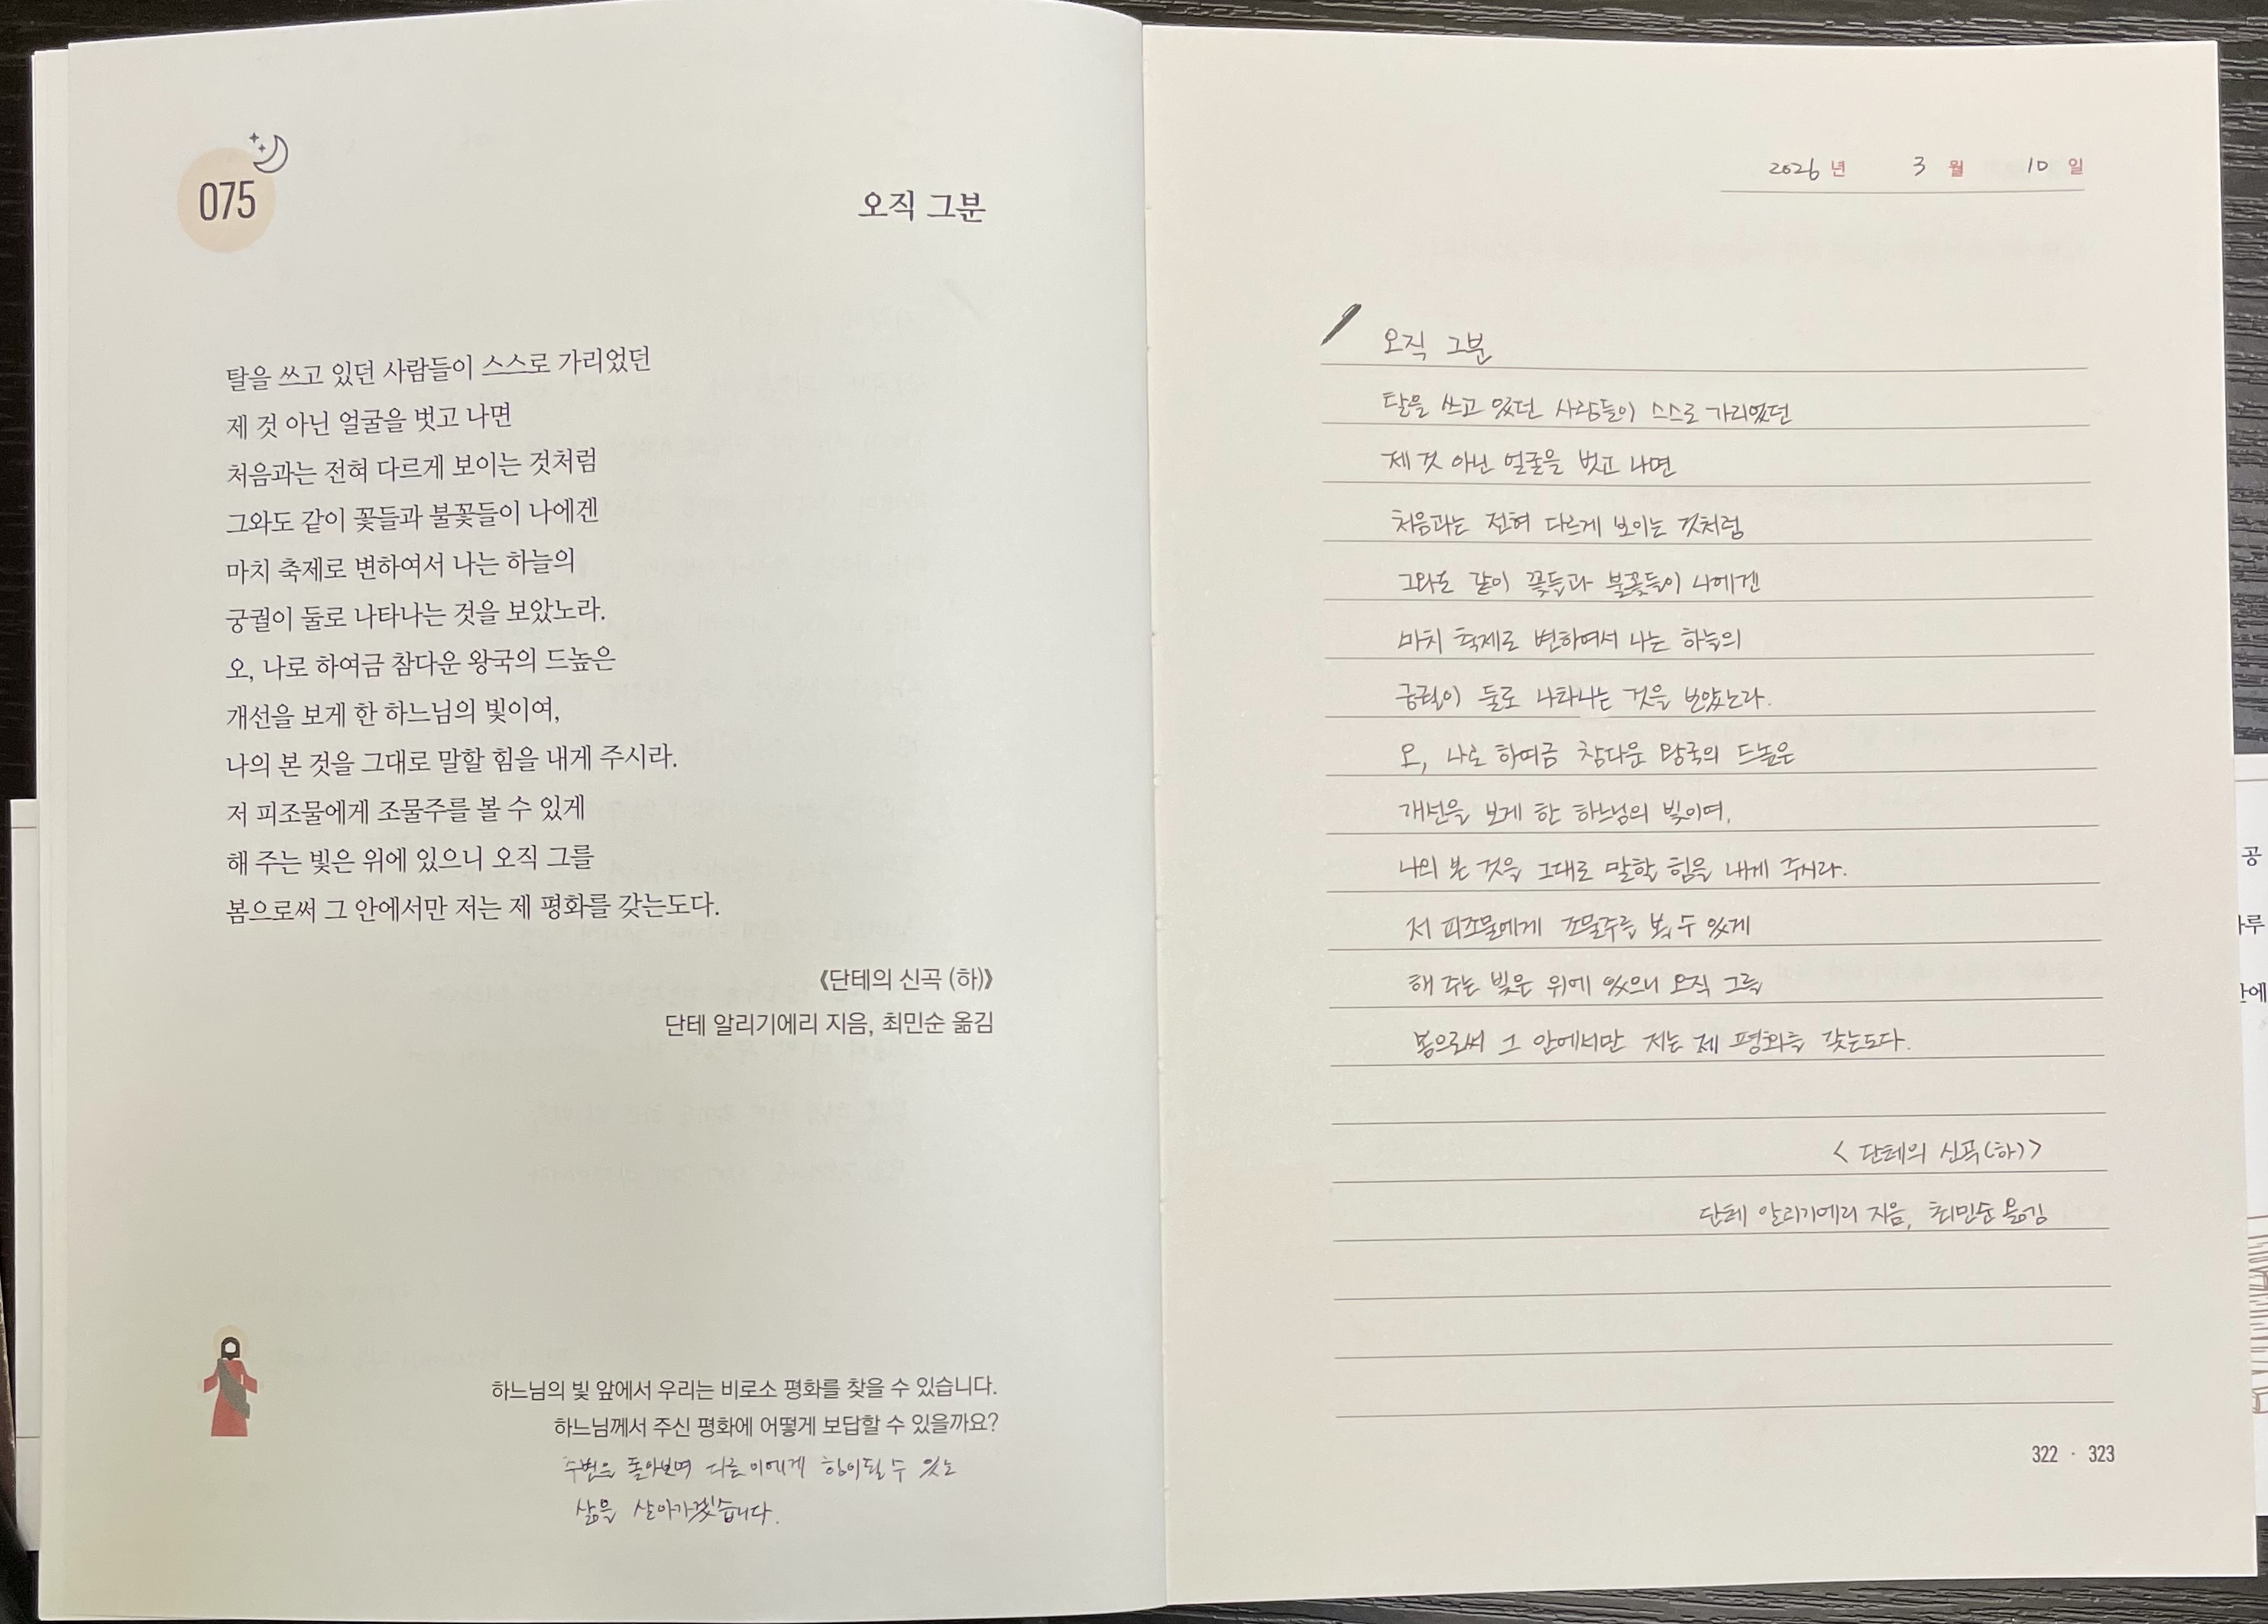 075
오직 그분
탈을 쓰고 있던 사람들이 스스로 가리었던
제 것 아닌 얼굴을 벗고 나면
처음과는 전혀 다르게 보이는 것처럼
그와도 같이 꽃들과 불꽃들이 나에겐
마치 축제로 변하여서 나는 하늘의
궁궐이 둘로 나타나는 것을 보았노라.
오, 나로 하여금 참다운 왕국의 드높은
개선을 보게 한 하느님의 빛이여,
나의 본 것을 그대로 말할 힘을 내게 주시라.
저 피조물에게 조물주를 볼 수 있게
해 주는 빛은 위에 있으니 오직 그를
봄으로써 그 안에서만 저는 제 평화를 갖는도다.
《단테의 신곡 (하)》
단테 알리기에리 지음, 최민순 옮김
하느님의 빛 앞에서 우리는 비로소 평화를 찾을 수 있습니다.
하느님께서 주신 평화에 어떻게 보답할 수 있을까요?
돌아보며 다른이에게 힘이될 수 있는
삶을 살아가겠습니다.
2026 년 3 월 10 일
오직 그분
탈을 쓰고 있던 사람들이 스스로 가리었던
제 것 아닌 얼굴을 벗고 나면
처음과는 전혀 다르게 보이는 것처럼
그와도 같이 꽃들과 불꽃들이 나에겐
마치 축제로 변하여서 나는 하늘의
궁궐이 둘로 나타나는 것을 보았노라.
오, 나로 하여금 참다운 왕국의 드높은
개선을 보게 한 하느님의 빛이여,
나의 본 것을 그대로 말할 힘을 내게 주시라.
저 피조물에게 조물주를 볼 수 있게
해 주는 빛은 위에 있으니 오직 그를
봄으로써 그 안에서만 저는 제 평화를 갖는도다.
< 단테의 신곡(하)>
단테 알리기에리 지음, 최민순 옮김
322 · 323
공